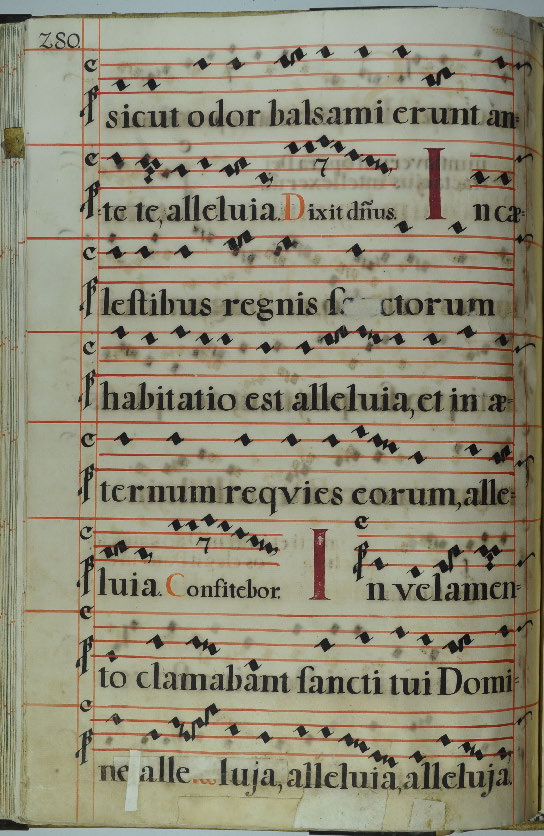 280.
sicut odor balsami erunt an=
te te, alleluia. Dixit dñus. In cæ=
leſtibus regnis ſa ctorum
habitatio est alleluia, et in æ=
ternum reqvies eorum, alle=
7
luia. Confitebor. In velamen=
to clamabant ſancti tui Domi=
ne alle luja, alleluia, alleluja.